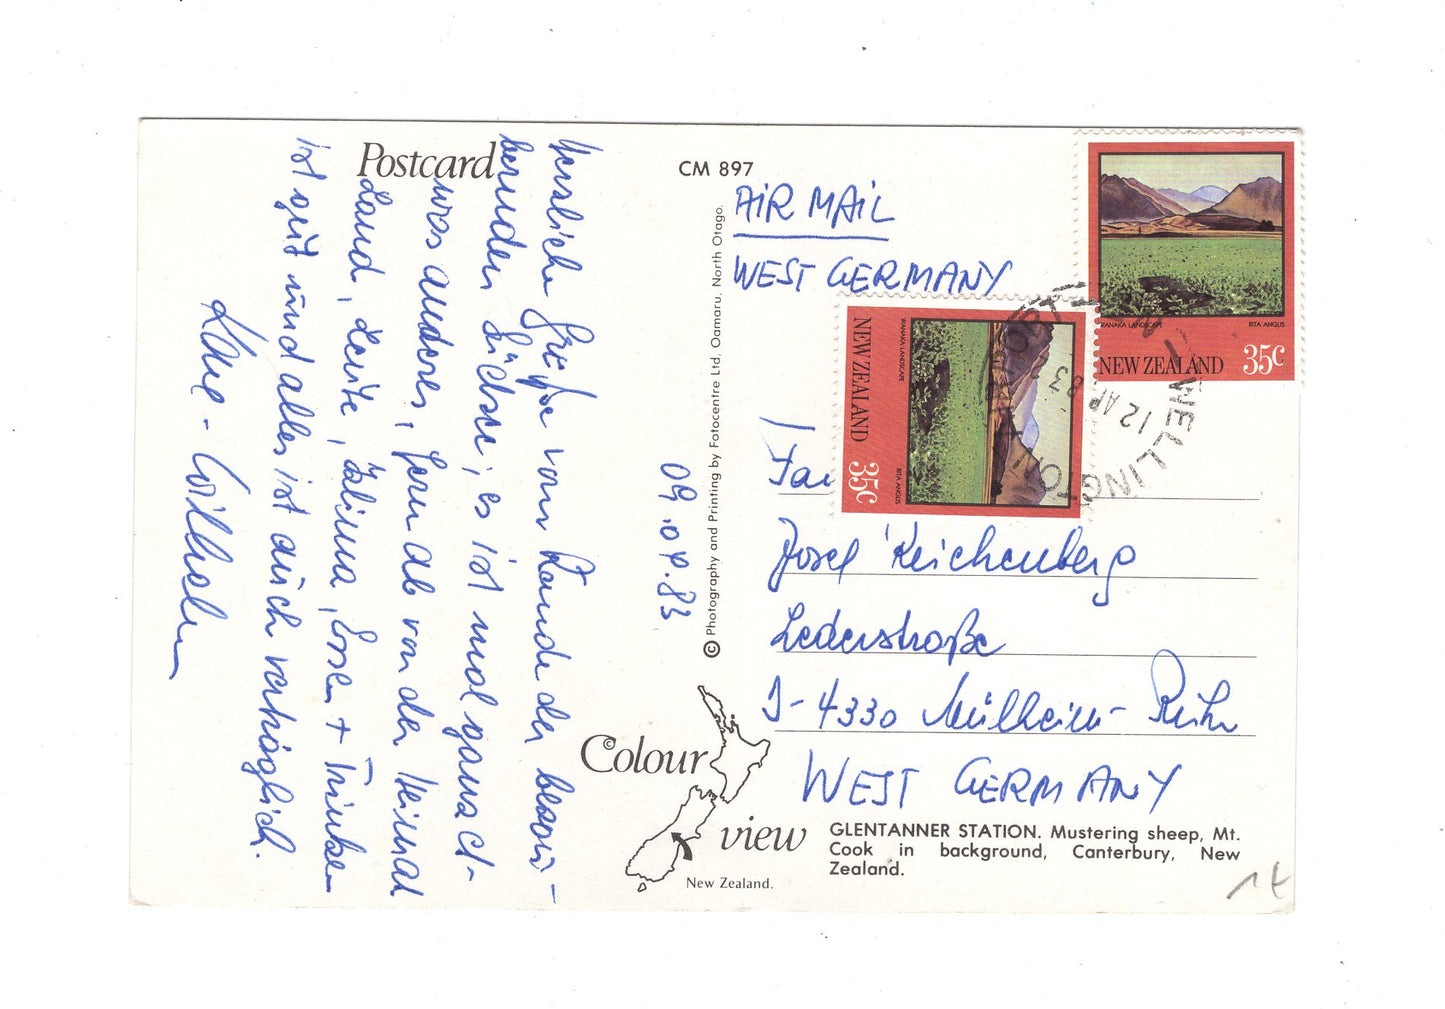 Postcard
CM 897
AIR MAIL
WEST GERMANY
WANAKA LANDSCAPE
RITA ANGUS
NEW ZEALAND 35c
WANAKA LANDSCAPE
RITA ANGUS
NEW ZEALAND 35c
WELLINGTON
12 AP
83
09.04.83
Herzliche Grüße vom Rande der bewun-
bernden Südsee; es ist mal ganz et-
was anderes, fern ab von der Heimat
Land, Leute, Klima, Essen + Trinken
ist gut und alles ist auch verträglich.
Wilhelm
© Photography and Printing by Fotocentre Ltd, Oamaru, North Otago.
Fam
Josef Reichenberg
Lederstraße
D-4330 Mülheim-Ruhr
WEST GERMANY
Colour
view
©
New Zealand.
GLENTANNER STATION. Mustering sheep, Mt.
Cook in background, Canterbury, New
Zealand.